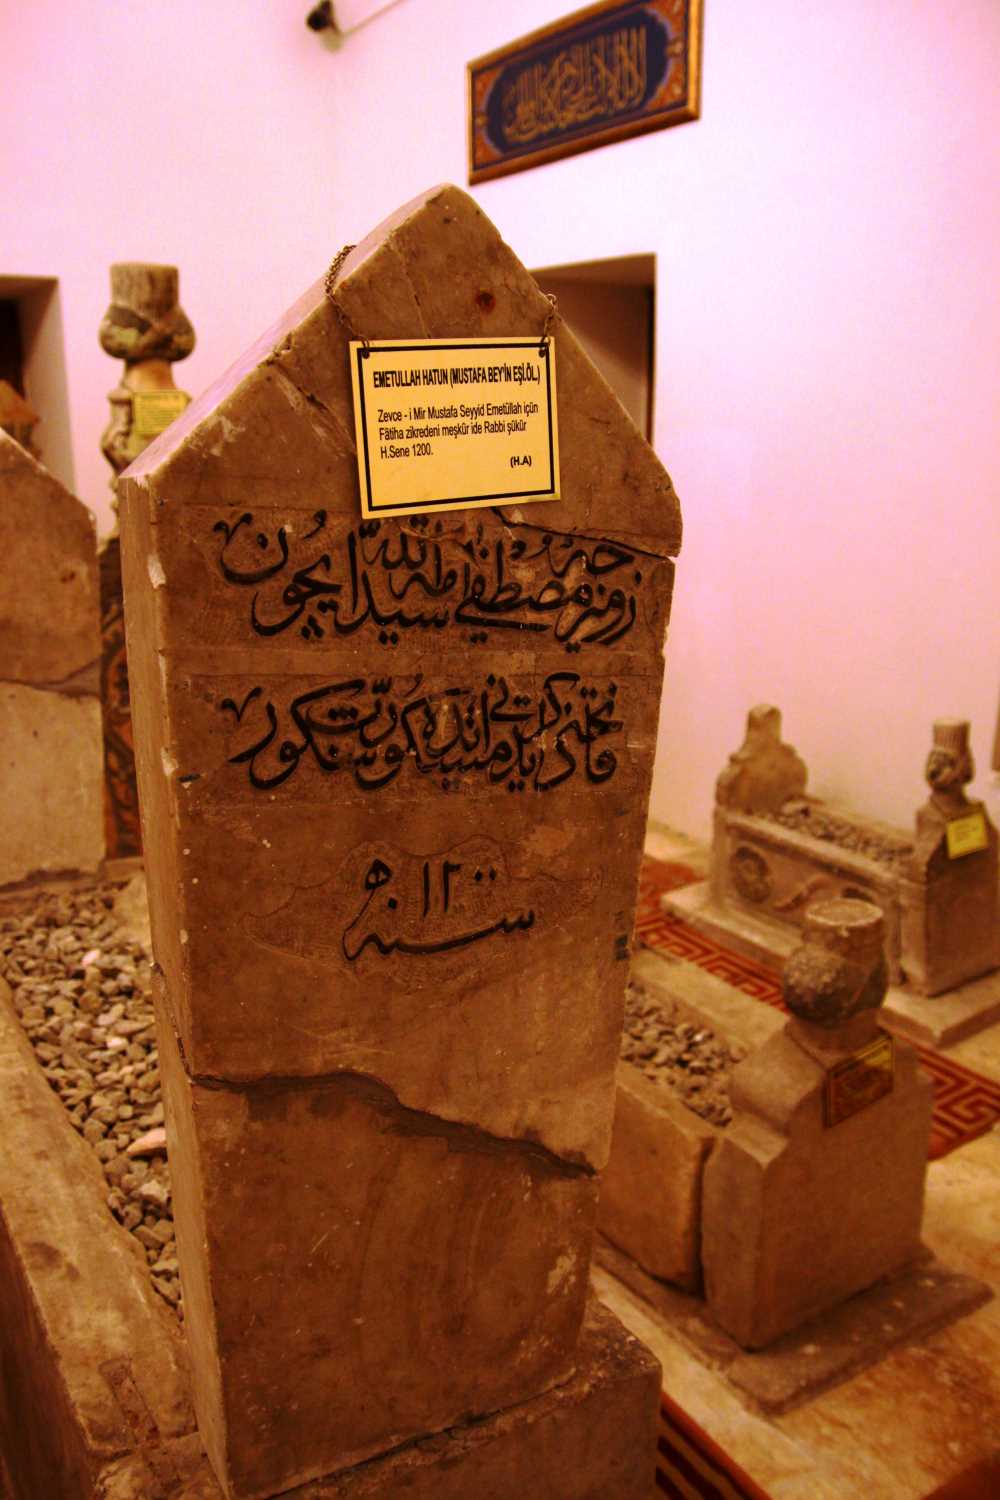 EMETULLAH HATUN (MUSTAFA BEY'İN EŞİ.ÖL.)
Zevce - i Mir Mustafa Seyyid Emetüllah içün
Fâtiha zikredeni meşkûr ide Rabbi şükûr
H.Sene 1200.
(H.A)
زوجه مير مصطفى سيد امة الله ايچون
فاتحه ذكر ايدنى مشكور ايده رب شكور
سنه ١٢٠٠